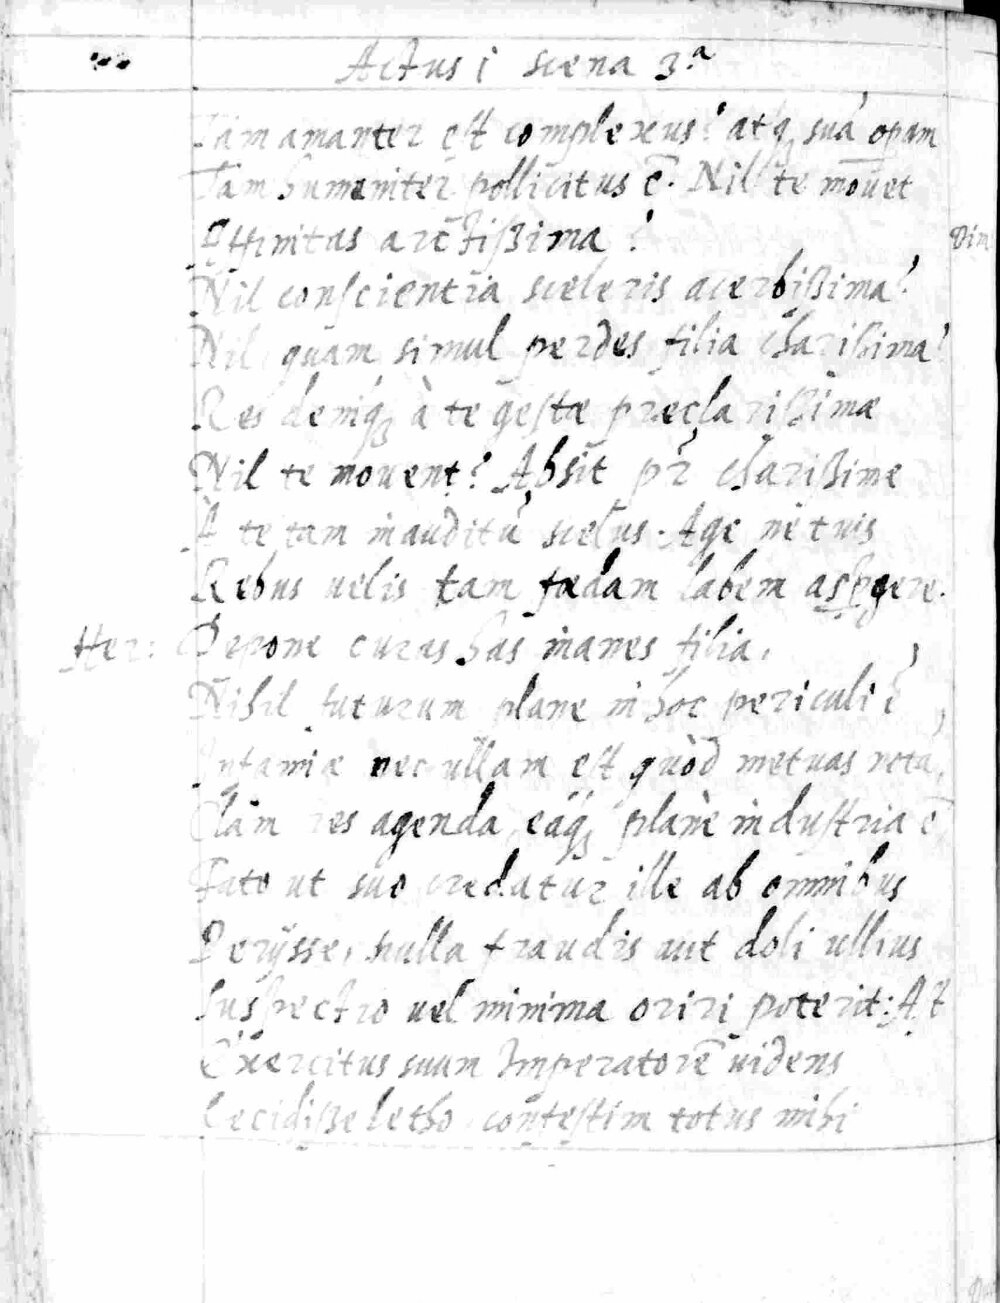 Actus i scena 3.ª
Tam amanter est complexus? atq, suā opam
Tam humaniter pollicitus ē. Nil te mouet
Affinitas arctißima?
Dim
Nil conscientia sceleris acerbißima?
Nil quam simul perdes filia charißima?
Res deniq, à te gestæ præclarißimæ
Nil te mouent? Absit pr̄ charißime
À te tam inauditū scelus. Age ne tuis
Rebus uelis tam fædam labem aspgere.
Her: Depone curas has inanes filia.
Nihil futurum plane in hoc periculi ē
Infamiæ nec ullam est quòd metuas notā,
Clàm res agenda, eáq, planè industria ē
Fato ut suo credatur ille ab omnibus
Perijsse, nulla fraudis aut doli ullius
Suspectio uel minima oriri poterit: At
Exercitus suum Imperatorē uidens
Cecidisse letho confestim totus mihi